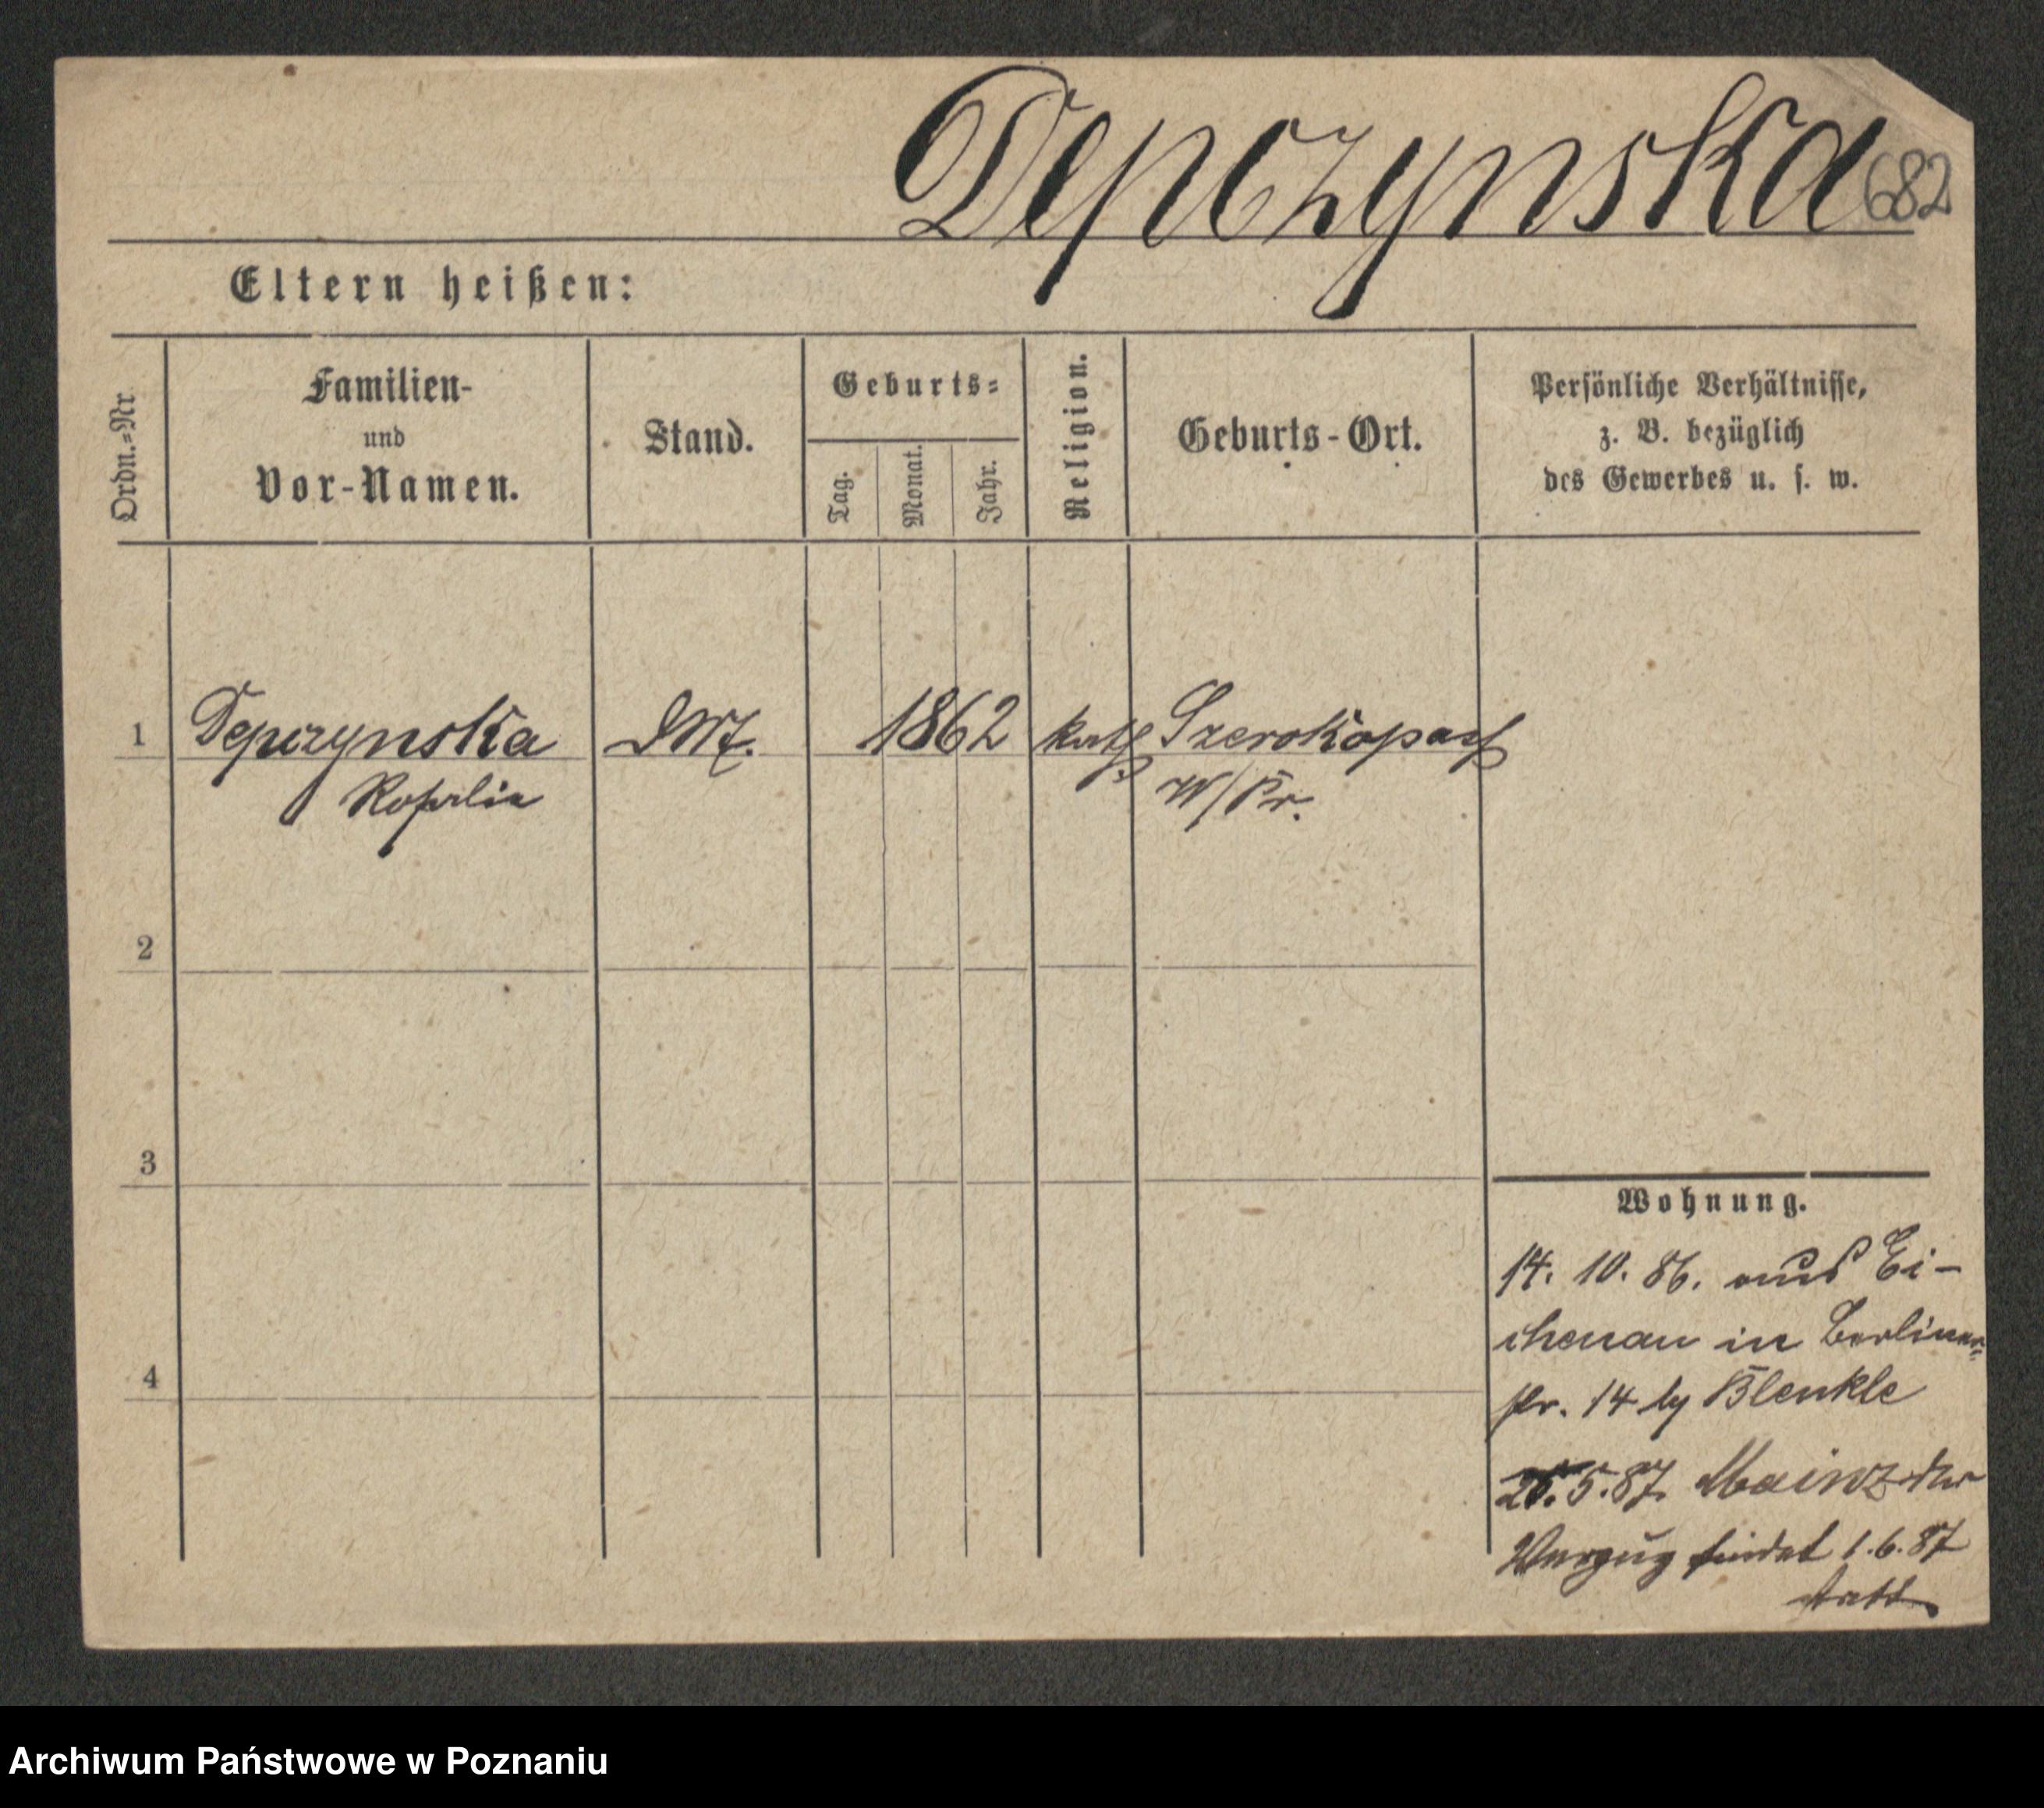 Depczynska 682
Eltern heißen:
Ordn.=Nr
Familien-
und
Vor-Namen.
Stand.
Geburts=
Tag.
Monat.
Jahr.
Religion.
Geburts-Ort.
Persönliche Verhältnisse,
z. B. bezüglich
des Gewerbes u. s. w.
1 Depczynska DM. 1862 kath Szerokopass
Rosalie W/Pr.
2
3
4
Wohnung.
14. 10. 86. aus Ei-
chenau in Berliner=
str. 14 by Blenkle
5.87. Mainz
findet 1.6.87
statt
Archiwum Państwowe w Poznaniu